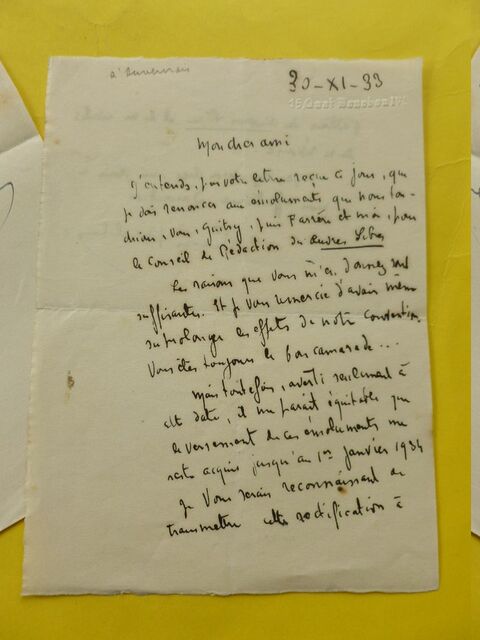 à Duvernois
30-XI-33
Mon cher ami
J'entends, par votre lettre reçue ce jour, que
je dois renoncer aux émoluments que nous tou-
chions, vous, Guitry, puis Farrère et moi, pour
le Conseil de Rédaction des Œuvres Libres
Les raisons que vous m'en donnez sont
suffisantes. Et je vous remercie d'avoir même
su prolonger les effets de notre convention.
Vous êtes toujours le bon camarade...
Mais toutefois, averti seulement à
cette date, il me paraît équitable que
le versement de ces émoluments me
reste acquis jusqu'au 1er janvier 1934
Je vous serais reconnaissant de
transmettre cette rectification à